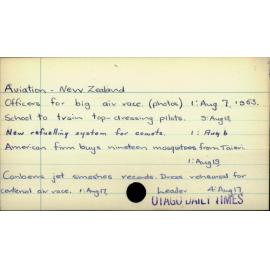 Aviation - New Zealand
Officers for big air race. (photos) 1: Aug 7, 1953.
School to train top-dressing pilots. 9: Aug 12
New refuelling system for comets. 1: Aug 6
American firm buys nineteen mosquitoes from Taieri.
1: Aug 13
Canberra jet smashes records. Dress rehearsal for
centennial air race. 1: Aug 17. Leader 4: Aug 17
OTAGO DAILY TIMES